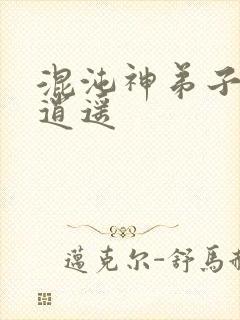 混沌神弟子
逍遥
邁克尔-舒馬赫